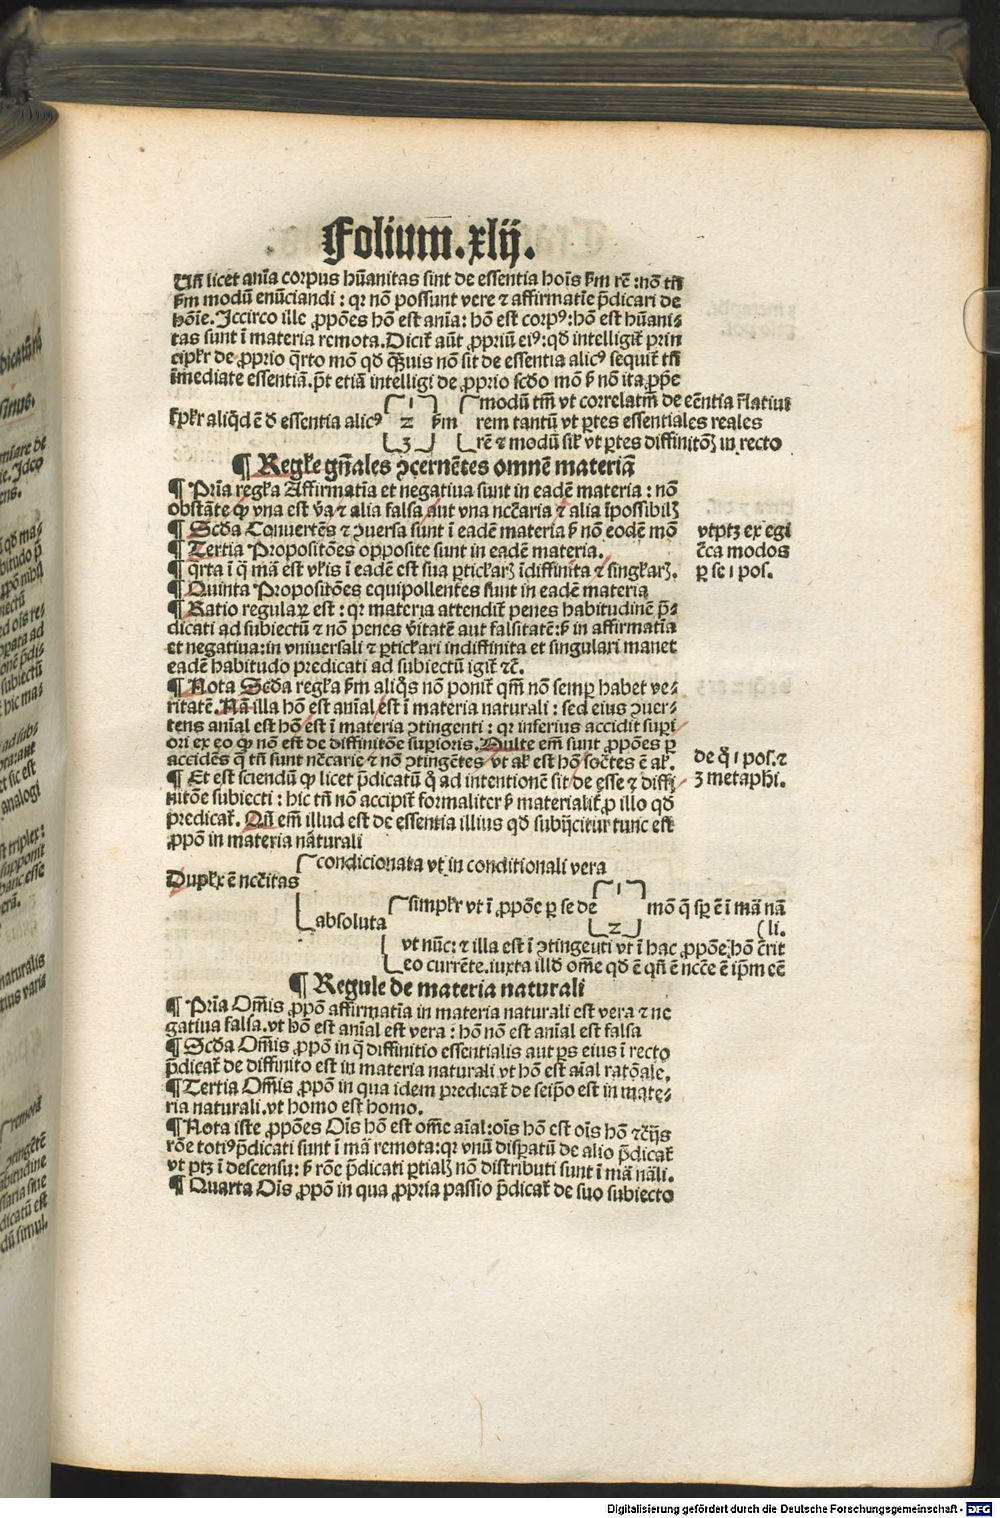 Folium. xlij.
Uñ licet anĩa corpus hũanitas sint de essentia hoĩs ẜm rẽ: nõ tñ
ẜm modũ enũciandi: qꝛ nõ possunt vere ⁊ affirmatĩe p̃dicari de
hõĩe. Iccirco ille ꝓpões hõ est anĩa: hõ est corpꝰ: hõ est hũani⸗
tas sunt ĩ materia remota. Dicit̃ aũt ꝓpriũ eiꝰ: qđ intelligit̃ prin
cipl̃r de ꝓprio q̃rto mõ qđ q̃uis nõ sit de essentia alicꝰ sequit̃ tñ
ĩmediate essentiã. p̃t etiã intelligi de ꝓprio scđo mõ ẜ nõ ita ꝓp̃e
modũ tm̃ vt correlatm̃ de eẽntia r̃latiui
aliq̃d ẽ đ essentia alicꝰ 1 2 3 ẜm rem tantũ vt ꝑtes essentiales reales
rẽ ⁊ modũ sil̃ vt ꝑtes diffinitõꝝ in recto
¶ Regl̃e gñales ↄcernẽtes omnẽ materiã
¶ Prĩa regl̃a Affirmatĩa et negatiua sunt in eadẽ materia: nõ
obstãte ꝙ vna est v̾a ⁊ alia falsa aut vna nc̃caria ⁊ alia ĩpossibil̃
¶ Scđa Conuertẽs ⁊ ↄuersa sunt ĩ eadẽ materia ẜ nõ eodẽ mõ
vtptꝫ ex egi
ẽca modos
ꝑ se 1 pos.
¶ Tertia Propositões opposite sunt in eadẽ materia.
¶ q̃rta ĩ q̃ mã est vl̃is ĩ eadẽ est sua ꝑticl̃aꝝ ĩdiffinita ⁊ singl̃aꝝ.
¶ Quinta Propositões equipollentes sunt in eadẽ materia
¶ Ratio regulaꝝ est: qꝛ materia attendit̃ penes habitudinẽ p̃⸗
dicati ad subiectũ ⁊ nõ penes v̾itatẽ aut falsitatẽ: ẜ in affirmatĩa
et negatiua: in vniuersali ⁊ ꝑticl̃ari indiffinita et singulari manet
eadẽ habitudo predicati ad subiectũ igit̃ ⁊c̃.
¶ Nota Scđa regl̃a ẜm aliq̃s nõ ponit̃ qm̃ nõ semꝑ habet ve⸗
ritatẽ. Nã illa hõ est anĩal est ĩ materia naturali: sed eius ↄuer⸗
tens anĩal est hõ est ĩ materia ↄtingenti: qꝛ inferius accidit suꝑi
ori ex eo ꝙ nõ est de diffinitõe suꝑioris. Multe em̃ sunt ꝓpões ꝑ
accidẽs q̃ tñ sunt nc̃carie ⁊ nõ ↄtingẽtes vt al̃ est hõ soc̃tes ẽ al̃.
de q̃ 1 pos. ⁊
3 metaphi.
¶ Et est sciendũ ꝙ licet p̃dicatũ q̃ ad intentionẽ sit de esse ⁊ diffi
nitõe subiecti: hic tñ nõ accipit̃ formaliter ẜ materialit̃ ꝓ illo qđ
predicat̃. Qñ em̃ illud est de essentia illius qđ subijcitur tunc est
ꝓpõ in materia naturali
condicionata vt in conditionali vera
Dupl̃x ẽ nc̃citas
simpl̃r vt ĩ ꝓpõe ꝑ se de 1 2 mõ q̃ sꝑ ẽ ĩ mã nã
absoluta (li.
vt nũc: ⁊ illa est ĩ ↄtingenti vt ĩ hac ꝓpõe hõ c̃rit
eo currẽte. iuxta illđ om̃e qđ ẽ qñ ẽ nc̃ce ẽ ip̃m eẽ
¶ Regule de materia naturali
¶ Prĩa Om̃is ꝓpõ affirmatĩa in materia naturali est vera ⁊ ne
gatiua falsa. vt hõ est anĩal est vera: hõ nõ est anĩal est falsa
¶ Scđa Om̃is ꝓpõ in q̃ diffinitio essentialis aut ꝑs eius ĩ recto
p̃dicat̃ de diffinito est in materia naturali vt hõ est aĩal ratõale.
¶ Tertia Om̃is ꝓpõ in qua idem predicat̃ de seip̃o est in mate⸗
ria naturali. vt homo est homo.
¶ Nota iste ꝓpões Oĩs hõ est om̃e aĩal: oĩs hõ est oĩs hõ ⁊c̃ijs
rõe totiꝰ p̃dicati sunt ĩ mã remota: qꝛ vnũ disꝑatũ de alio p̃dicat̃
vt ptꝫ ĩ descensu: ẜ rõe p̃dicati ꝑtial̃ nõ distributi sunt ĩ mã nãli.
¶ Quarta Oĩs ꝓpõ in qua ꝓpria passio p̃dicat̃ de suo subiecto
Digitalisierung gefördert durch die Deutsche Forschungsgemeinschaft - DFG